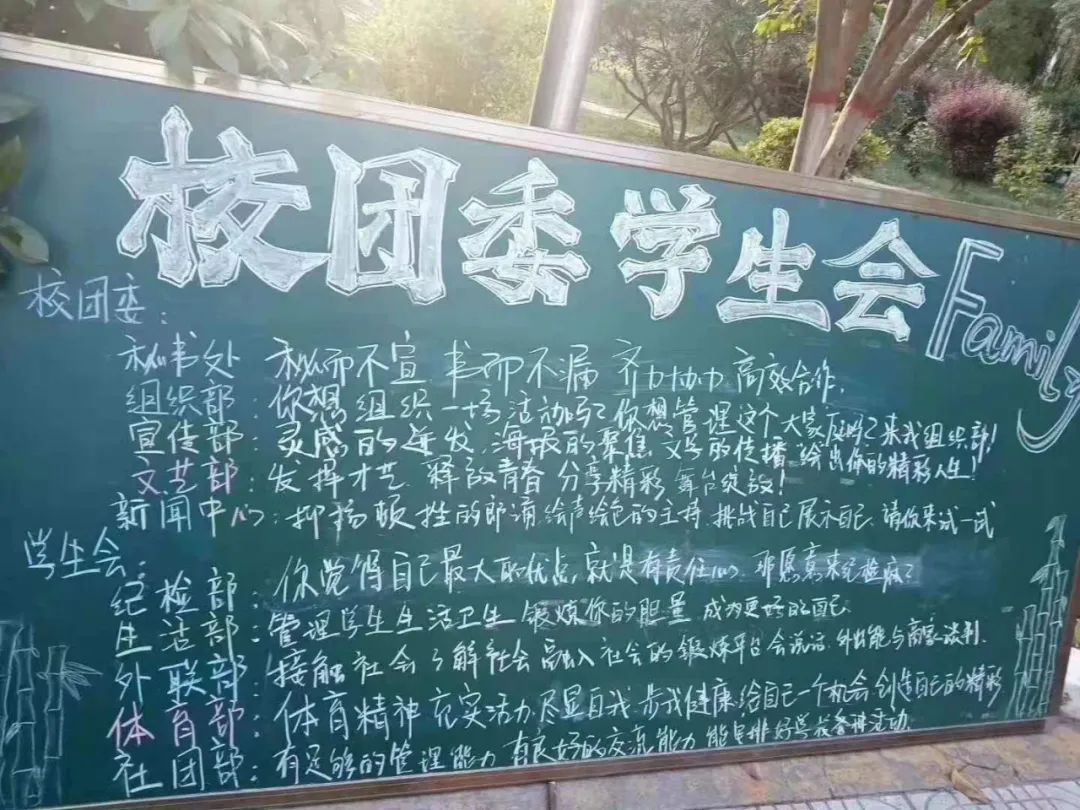 校团委学生会 Family
校团委:
秘书处 秘而不宣 书而不漏 齐力协力 高效合作.
组织部:你想组织一场活动吗?你想管理这个大家庭吗?来我组织部!
宣传部:灵感的迸发,海报的聚焦 文字的传播 绘出你的精彩人生!
文艺部:发挥才艺 释放青春 分享精彩 舞台绽放!
新闻中心:抑扬顿挫的朗诵 绘声绘色的主持 挑战自己 展示自己 请你来试一试
学生会:
纪检部:你觉得自己最大的优点,就是有责任心 那愿意来纪检底?
生活部:管理学生生活卫生 锻炼你的胆量 成为更好的自己.
外联部:接触社会 了解社会 融入社会的锻炼平台 会说话 外出能与商家谈判.
体育部:体育精神 充实活力 尽显自我 给自己一个机会 创造自己的精彩
社团部:有足够的管理能力 有良好的交流能力 能安排好学校各种活动.